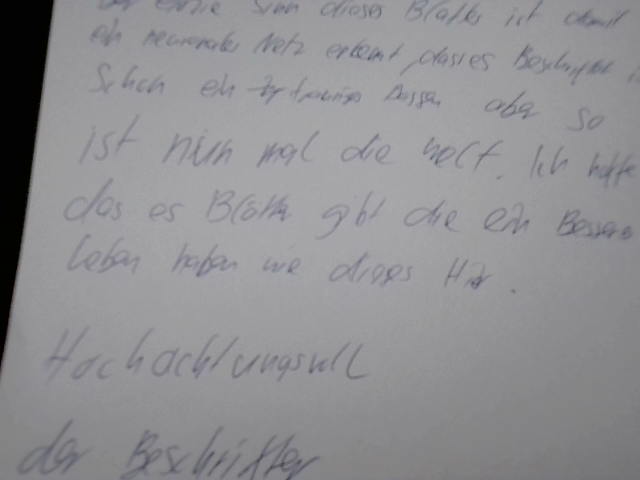 der einzie Sinn dieses Blattes ist damit
ein neuronales Netz erkennt, dass es Beschriftet
Schon ein trauriges Dassen aber so
ist nun mal die welt. Ich hoffe
das es Blätter gibt die ein Besseres
leben haben wie dieses Hir.
Hochachtungsvoll
der Beschrifter